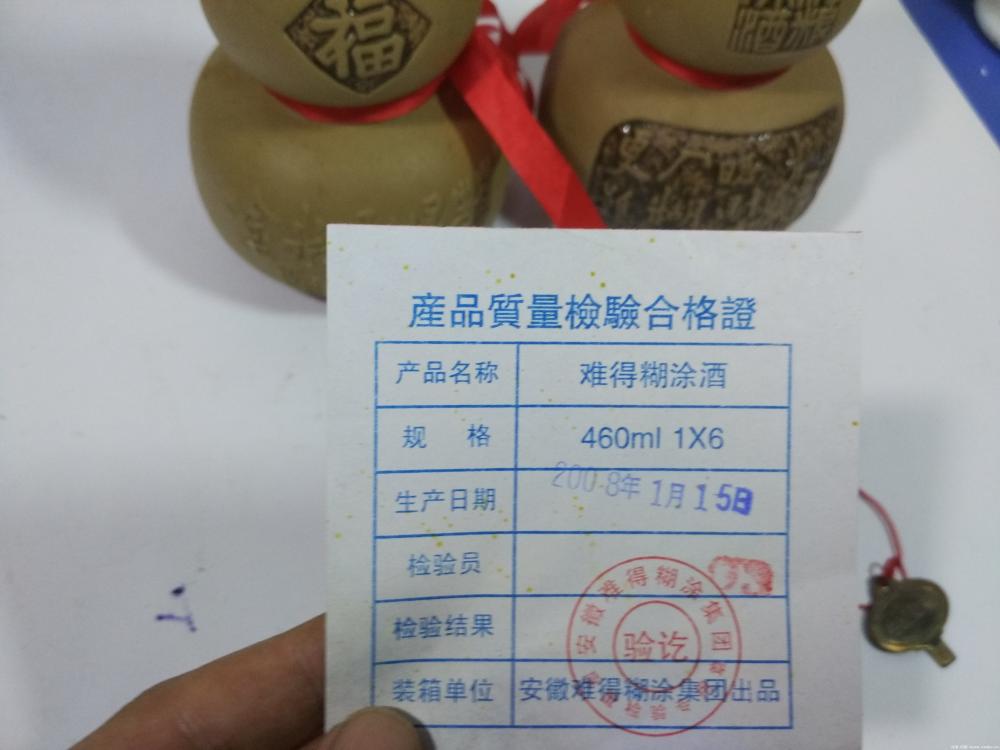 福
産品質量檢驗合格證
产品名称 难得糊涂酒
规 格 460ml 1X6
生产日期 2008年1月15日
检验员
检验结果
装箱单位 安徽难得糊涂集团出品
安徽难得糊涂集团
验讫